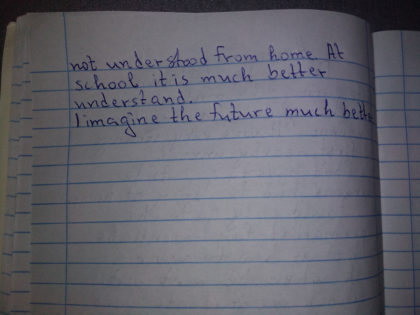 not understood from home. At
school it is much better
understand.
I imagine the future much better